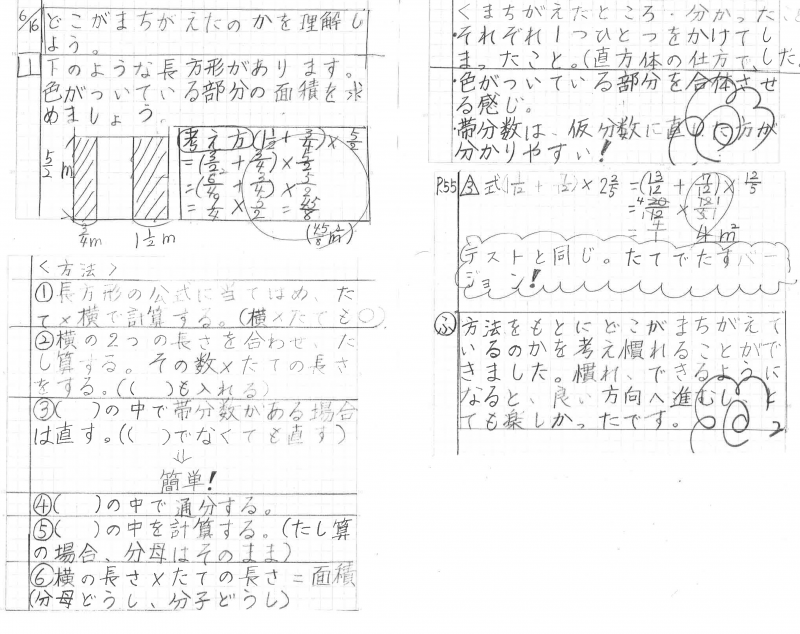 6/16 どこがまちがえたのかを理解し
よう。
1 下のような長方形があります。
色がついている部分の面積を求
めましょう。
5/2 m
3/4 m 1 1/2 m
考え方 (1 1/2 + 3/4) × 5/2
= (3/2 + 3/4) × 5/2
= 9/4 × 5/2 = 45/8
(45/8 m²)
〈方法〉
①長方形の公式に当てはめ、た
て×横で計算する。(横×たても○)
②横の2つの長さを合わせ、た
し算する。その数×たての長さ
をする。(( )も入れる)
③( )の中で帯分数がある場合
は直す。(( )でなくても直す)
⇓
簡単!
④( )の中で通分する。
⑤( )の中を計算する。(たし算
の場合、分母はそのまま)
⑥横の長さ×たての長さ=面積
(分母どうし、分子どうし)
〈まちがえたところ・分かったこと
・それぞれ1つひとつをかけてし
まったこと。(直方体の仕方で、した。
・色がついている部分を合体させ
る感じ。
・帯分数は、仮分数に直した方が
分かりやすい!
P.55 3 式 (1 1/12 + 7/12) × 2 2/5 = (13/12 + 7/12) × 12/5
4 m²
テストと同じ。たてでたすバー
ジョン!
ふ 方法をもとにどこがまちがえて
いるのかを考え慣れることがで
きました。慣れ、できるように
なると、良い方向へ進むし、と
ても楽しかったです。